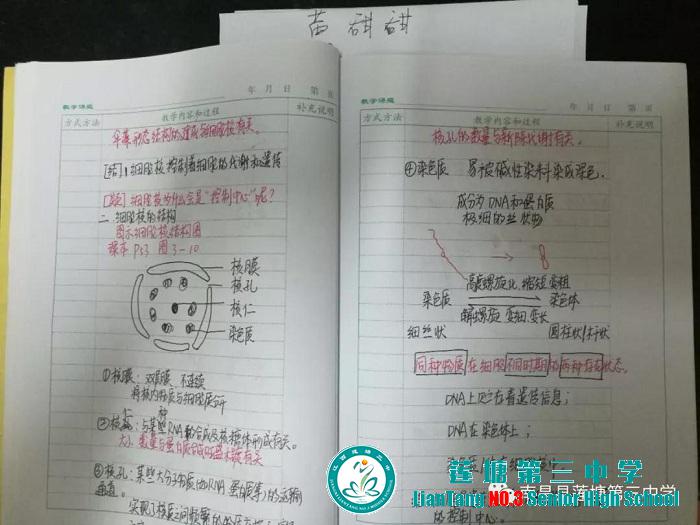 苗甜甜
教学课题
年 月 日 第 页
方式方法
教学内容和过程
补充说明
伞藻形态结构的建成与细胞核有关。
[结]:细胞核控制着细胞的代谢和遗传
细胞核为什么会是"控制中心"呢?
二、细胞核的结构
图示细胞核结构图
课本 P53 图3-10
核膜
核孔
核仁
染色质
①核膜: 双层膜 不连续
将核内物质与细胞质分开
与某些RNA的合成以及核糖体形成有关。
大小、数量与蛋白质合成旺盛程度有关
③核孔:某些大分子物质(如RNA 蛋白质等)的运输
通道。
教学课题
年 月 日 第 页
方式方法
教学内容和过程
补充说明
核孔的数量与新陈代谢有关。
④染色质 易被碱性染料染成深色。
成分为DNA和蛋白质
极细的丝状物
高度螺旋化,缩短变粗
染色质
染色体
解螺旋 变细变长
细丝状
圆柱状/杆状
同种物质在细胞不同时期的两种存在状态。
DNA上贮存着遗传信息;
DNA在染色体上;
的控制中心。
莲塘第三中学
LianTang NO.3 Senior High School
南昌县莲塘第三中学